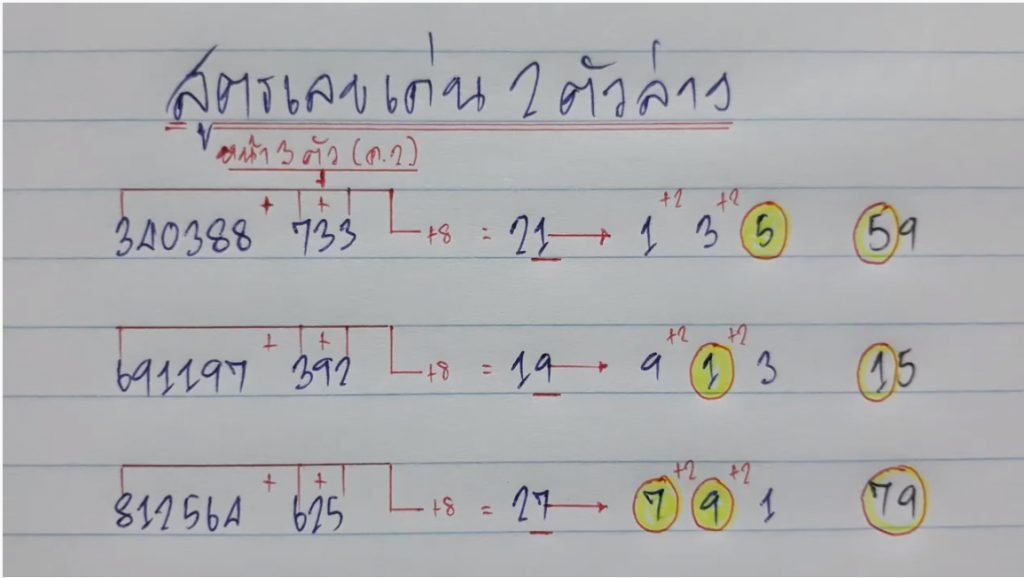 สูตรเลขเด่น 2 ตัวล่าง
หน้า 3 ตัว (ต.2)
+ + +2 +2
340388 733 +8 = 21 → 1 3 5 59
+ + +2 +2
691197 392 +8 = 19 → 9 1 3 15
+ + +2 +2
812564 625 +8 = 27 → 7 9 1 79